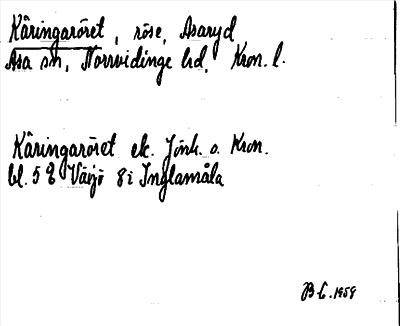 Käringaröret, röse, Asaryd
Asa sn, Norrvidinge hd, Kron. l.
Käringaröret ek. Jönk. o. Kron.
bl. 5 8 Växjö 8i Inglamåla
B E. 1958